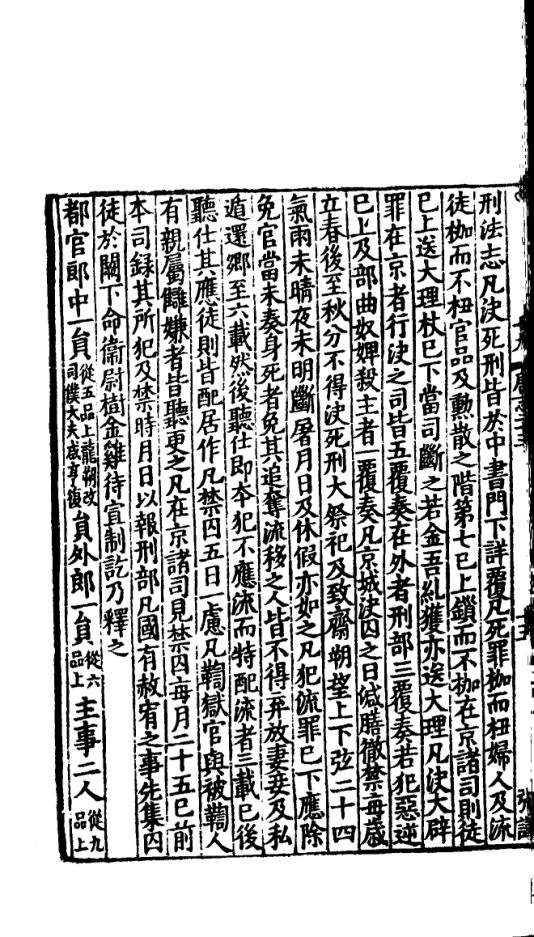 刑法志凡決死刑皆於中書門下詳覆凡死罪枷而杻婦人及流
徒枷而不杻官品及勲散之階第七已上鎖而不枷在京諸司則徒
已上送大理杖已下當司斷之若金吾糺獲亦送大理凡決大辟
罪在京者行決之司皆五覆奏在外者刑部三覆奏若犯惡逆
已上及部曲奴婢殺主者一覆奏凡京城決囚之日減膳徹禁毎歲
立春後至秋分不得決死刑大祭祀及致齋朔望上下弦二十四
氣雨未晴夜未明斷屠月日及休假亦如之凡犯流罪已下應除
免官當未奏身死者免其追奪流移之人皆不得弃放妻妾及私
遁還鄉至六載然後聽仕即本犯不應流而特配流者三載已後
聽仕其應徒則皆配居作凡禁囚五日一慮凡鞫獄官與被鞫人
有親屬讎嫌者皆聽更之凡在京諸司見禁囚每月二十五已前
本司錄其所犯及禁時月日以報刑部凡國有赦宥之事先集囚
徒於闕下命衞尉樹金雞待宣制訖乃釋之
都官郎中一員從五品上龍朔改司僕大夫咸亨復員外郎一員從六品上主事二人從九品上